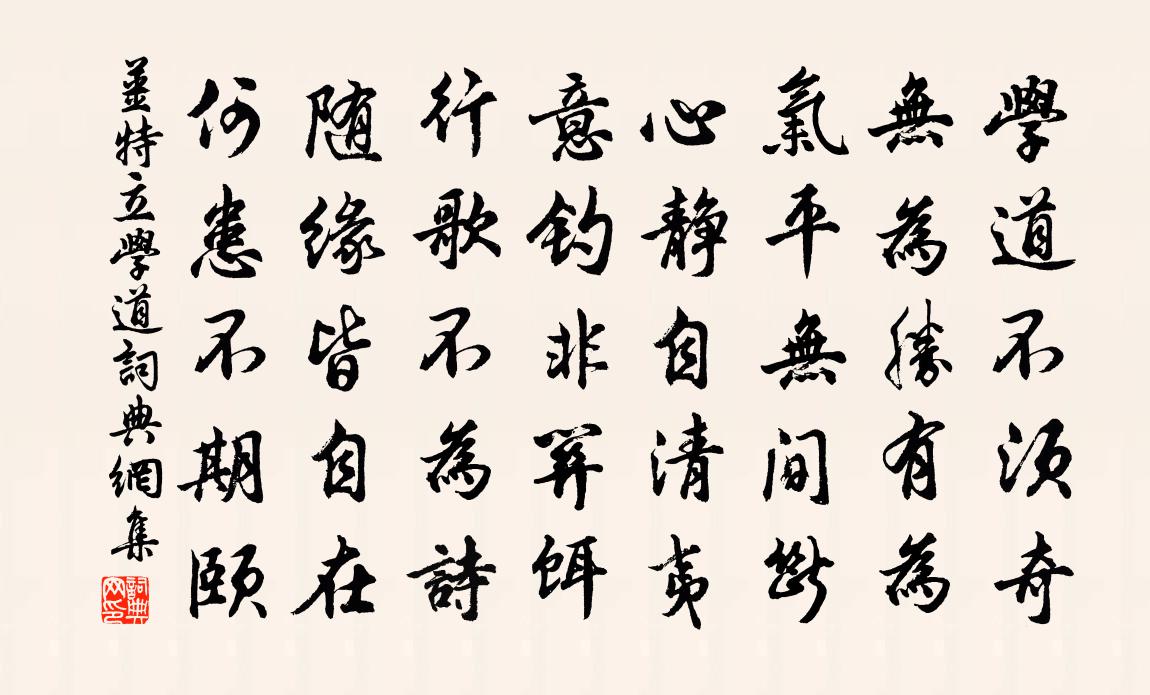 學道不須奇
無為勝有為
氣平無間斷
心靜自清夷
意釣非關餌
行歌不為詩
隨緣皆自在
何患不期頤
姜特立學道詞典網集
詞典網印